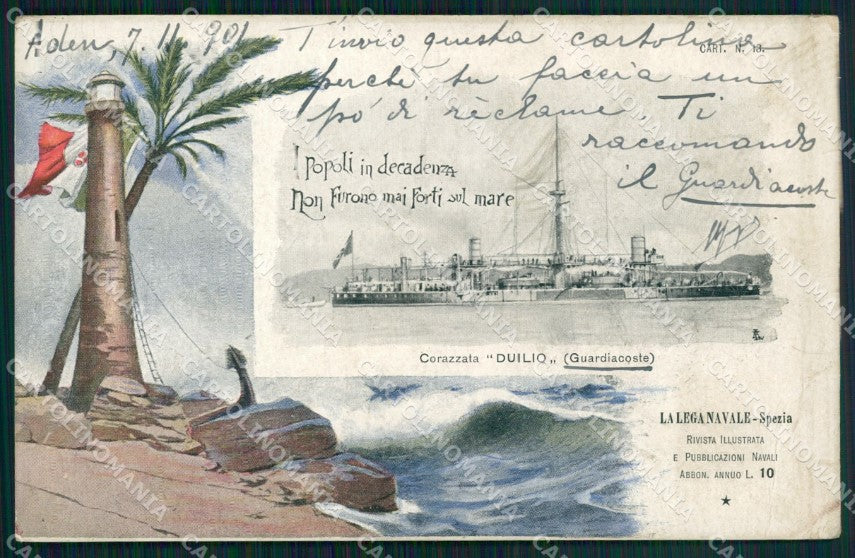 Aden, 7. 11. 901
T'invio questa cartolina
CART. N. 13.
perchè tu faccia un
pó di rèclame. Ti
raccomando
il Guardiacoste
I popoli in decadenza
Non furono mai forti sul mare
Corazzata "DUILIO„ (Guardiacoste)
LA LEGA NAVALE - Spezia
RIVISTA ILLUSTRATA
E PUBBLICAZIONI NAVALI
ABBON. ANNUO L. 10
CARTOLINOMANIA